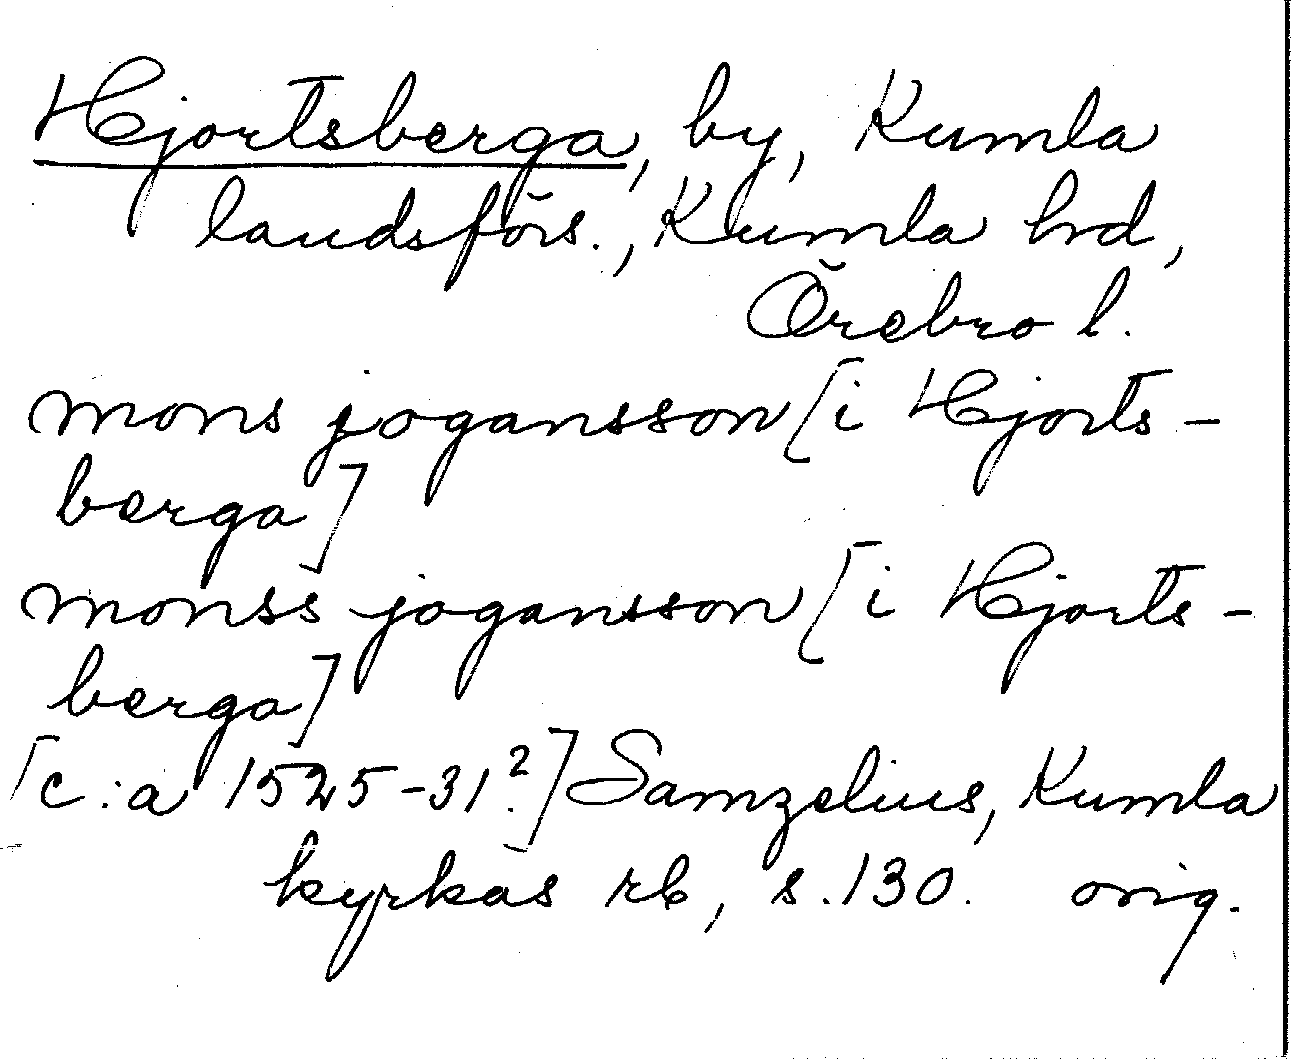 Hjortsberga, by, Kumla
landsförs., Kumla hd,
Örebro l.
mons jogansson [i Hjorts-
berga]
monss jogansson [i Hjorts-
berga]
[c:a 1525-31?] Samzelius, Kumla
kyrkas rb, s. 130. orig.